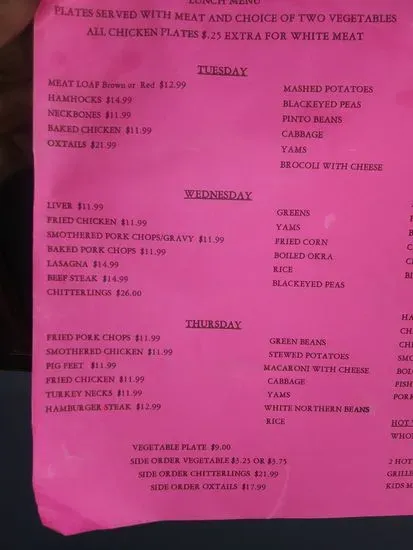 LUNCH MENU
PLATES SERVED WITH MEAT AND CHOICE OF TWO VEGETABLES
ALL CHICKEN PLATES $.25 EXTRA FOR WHITE MEAT
TUESDAY
MEAT LOAF Brown or Red $12.99
HAMHOCKS $14.99
NECKBONES $11.99
BAKED CHICKEN $11.99
OXTAILS $21.99
MASHED POTATOES
BLACKEYED PEAS
PINTO BEANS
CABBAGE
YAMS
BROCOLI WITH CHEESE
WEDNESDAY
LIVER $11.99
FRIED CHICKEN $11.99
SMOTHERED PORK CHOPS/GRAVY $11.99
BAKED PORK CHOPS $11.99
LASAGNA $14.99
BEEF STEAK $14.99
CHITTERLINGS $26.00
GREENS
YAMS
FRIED CORN
BOILED OKRA
RICE
BLACKEYED PEAS
THURSDAY
FRIED PORK CHOPS $11.99
SMOTHERED CHICKEN $11.99
PIG FEET $11.99
FRIED CHICKEN $11.99
TURKEY NECKS $11.99
HAMBURGER STEAK $12.99
GREEN BEANS
STEWED POTATOES
MACARONI WITH CHEESE
CABBAGE
YAMS
WHITE NORTHERN BEANS
RICE
VEGETABLE PLATE $9.00
SIDE ORDER VEGETABLE $3.25 OR $3.75
SIDE ORDER CHITTERLINGS $21.99
SIDE ORDER OXTAILS $17.99
HA
CH
CHI
SMO
BOI
FISH
PORK
HOT
WHO
2 HOT
GRILLE
KIDS M